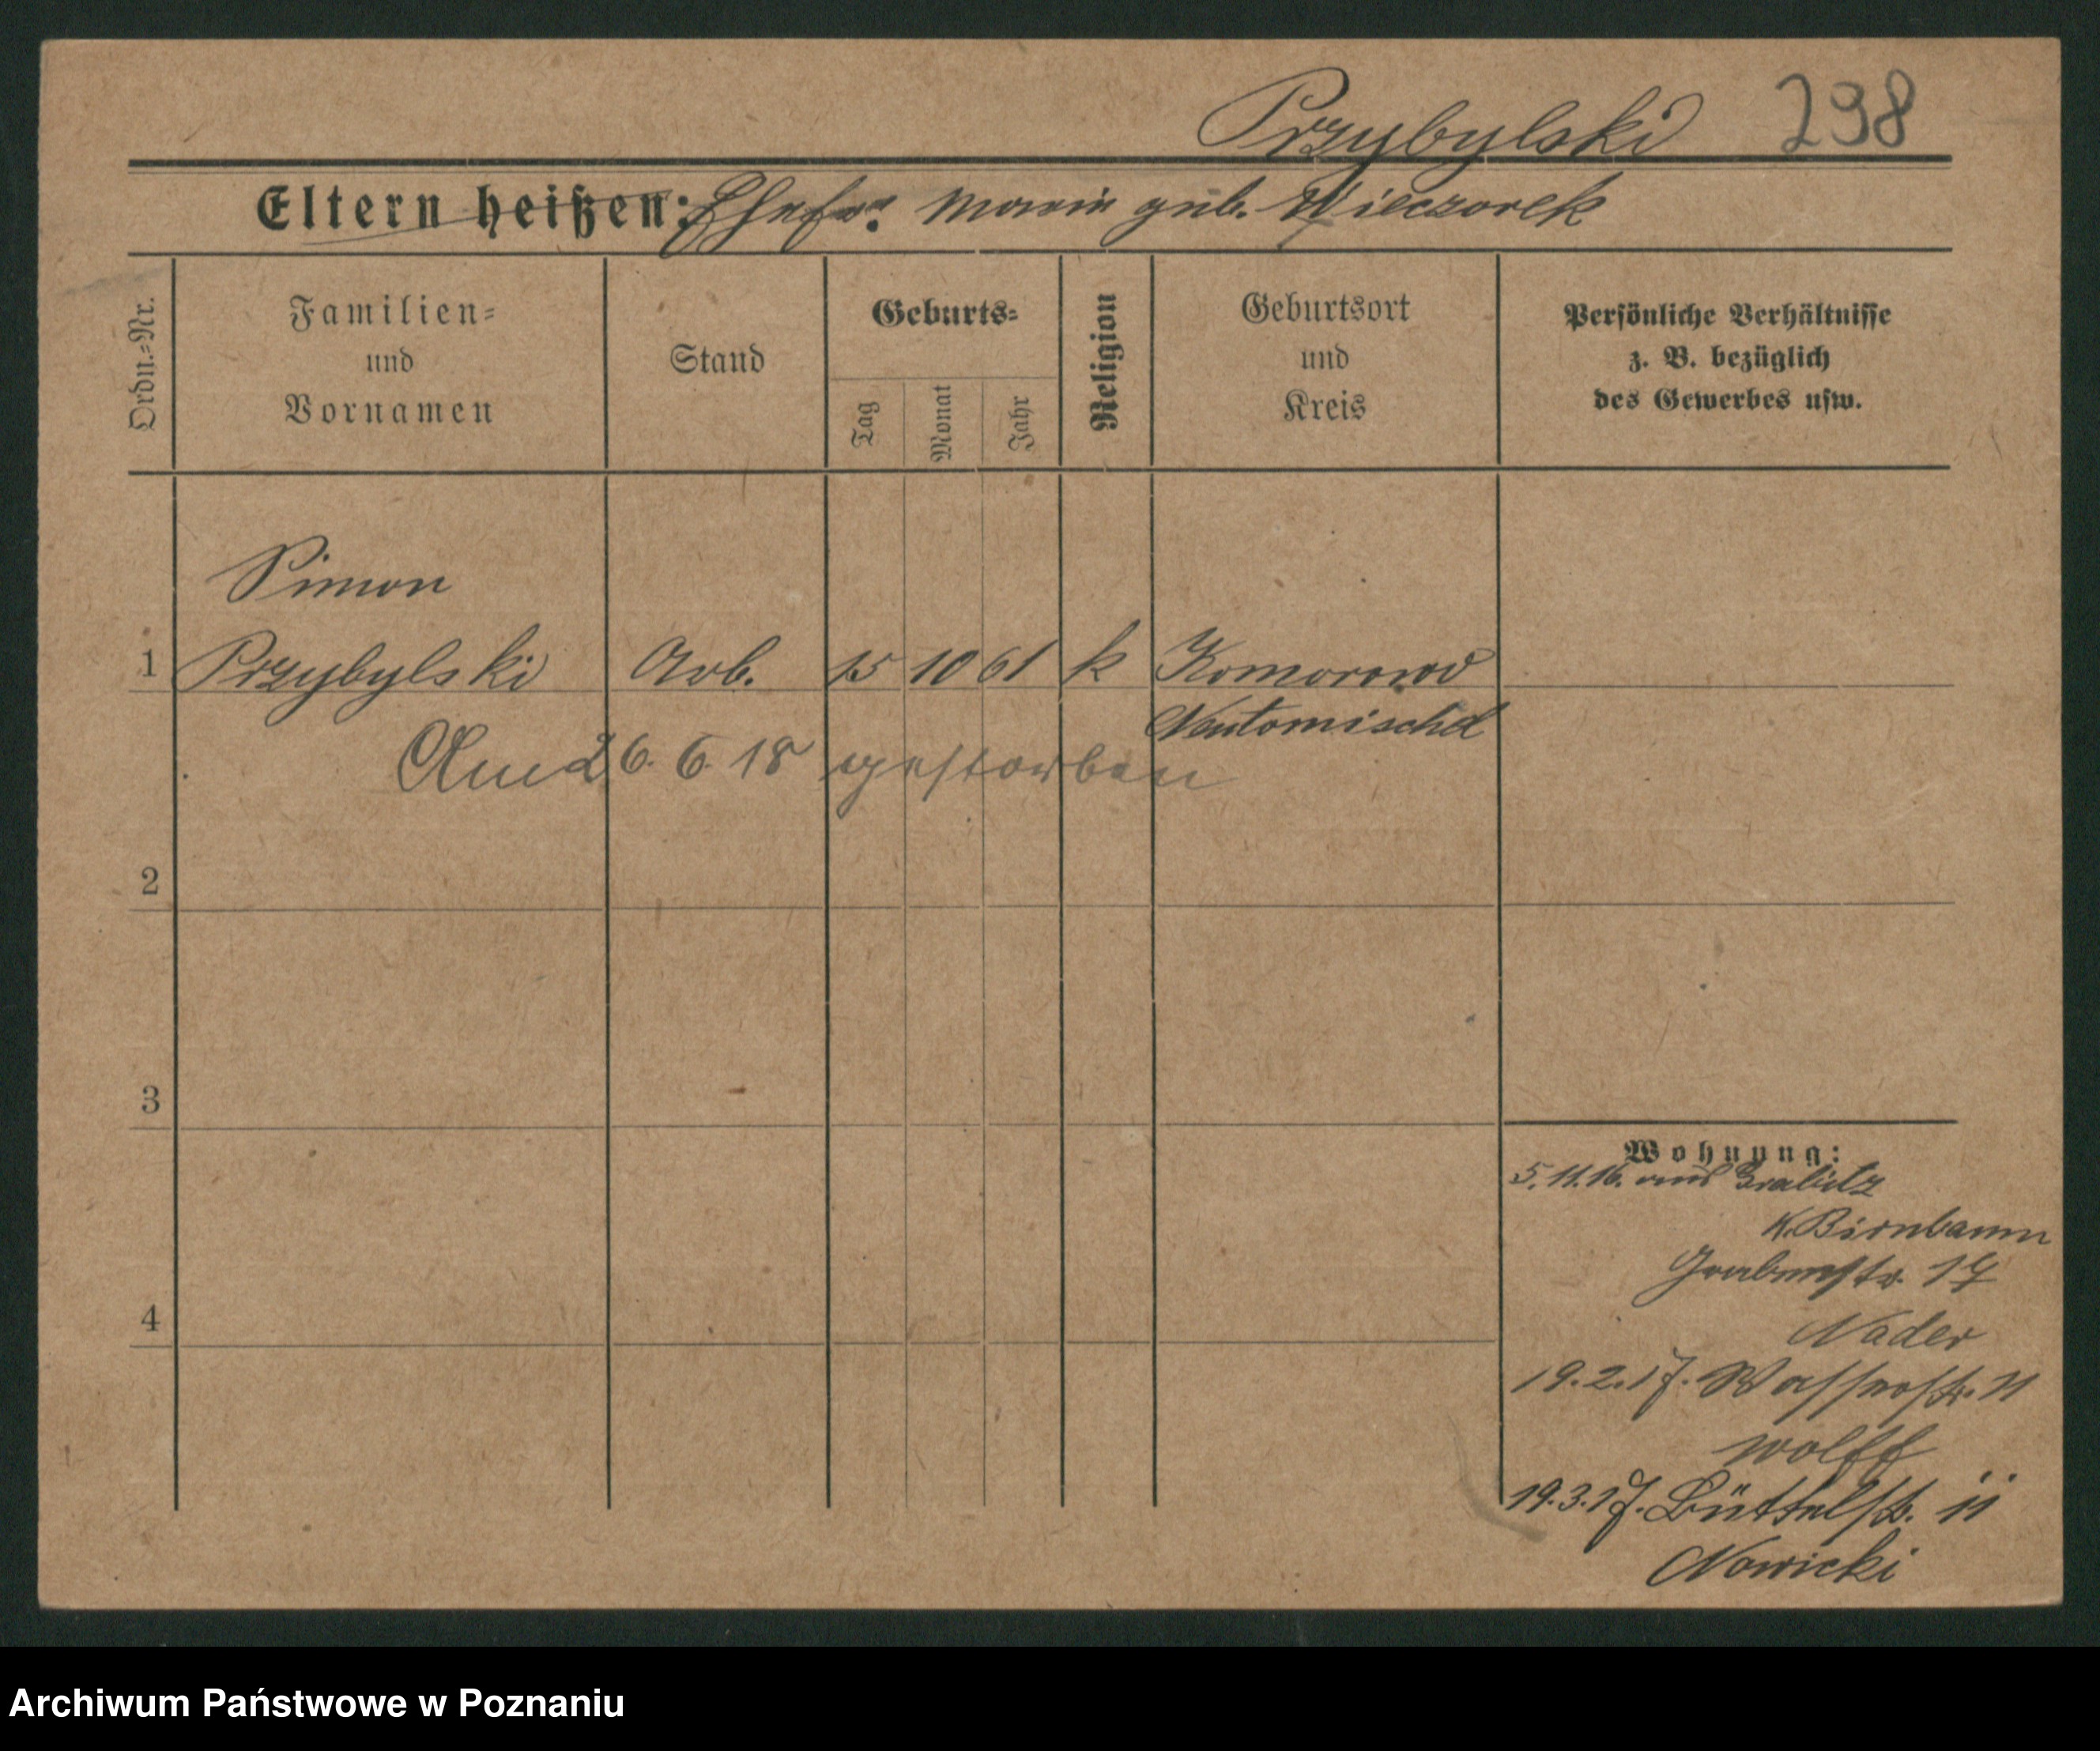 Przybylski 298
Eltern heißen: Ehefr. Marie geb. Wieczorek
Ordn.-Nr.
Familien-
und
Vornamen
Stand
Geburts-
Tag
Monat
Jahr
Religion
Geburtsort
und
Kreis
Persönliche Verhältnisse
z. B. bezüglich
des Gewerbes usw.
Simon
1 Przybylski Arb. 15 10 61 k Komorowo
Neutomischel
Am 26. 6. 18 gestorben
2
3
4
Wohnung:
5. 11. 16. aus
K. Birnbaum
Grabenstr. 17
Nader
19. 2. 17. Wasserstr. 11
Wolff
19. 3. 17. Büttelstr. 11
Nowicki
Archiwum Państwowe w Poznaniu